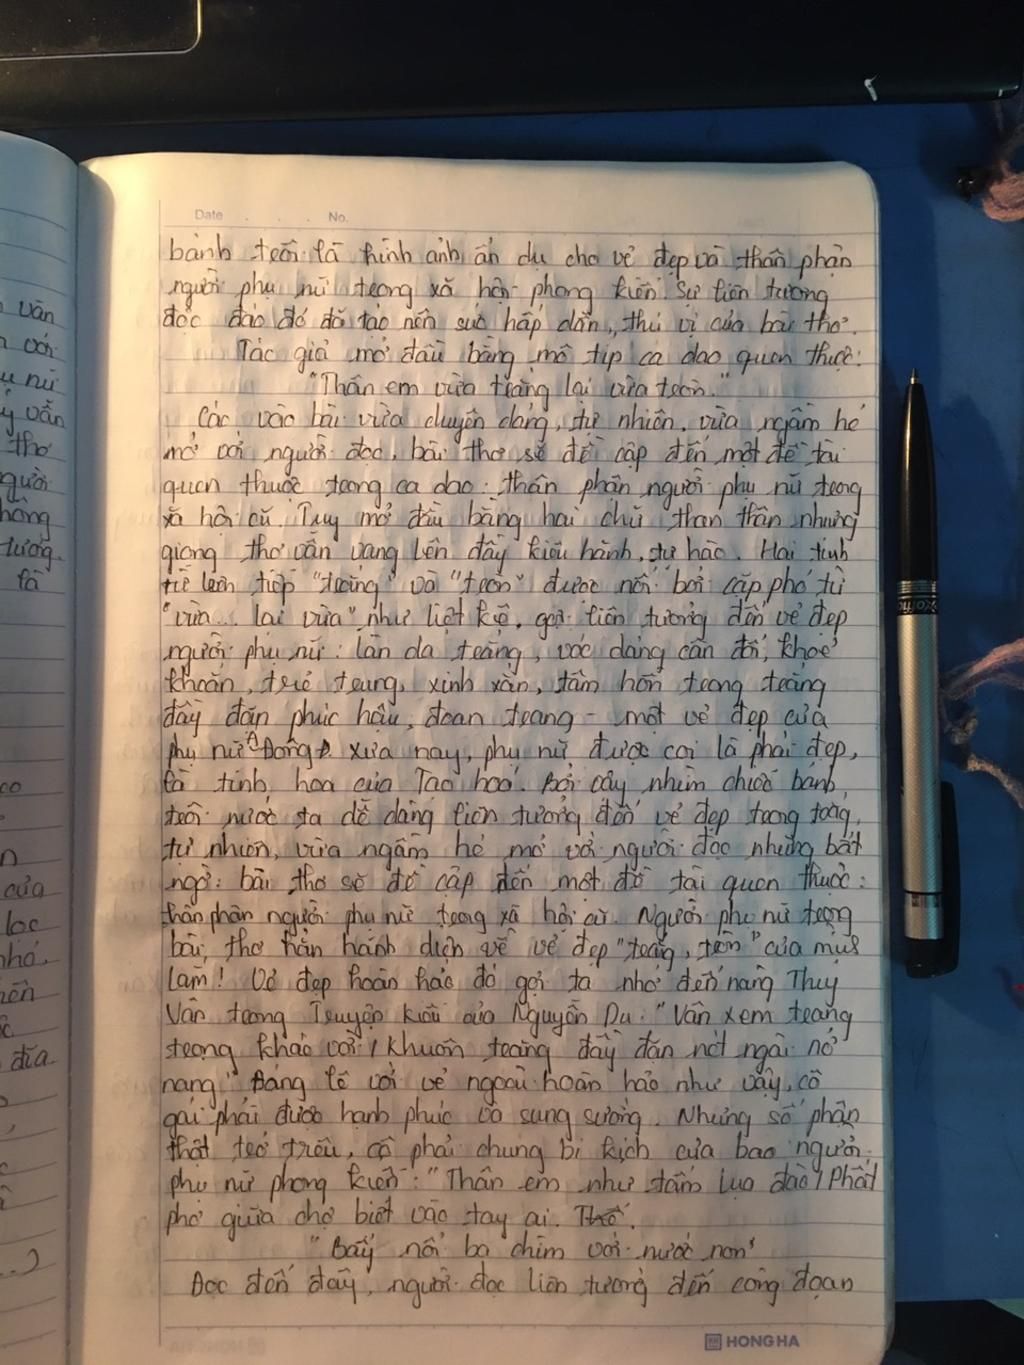 Date . . . No.
bánh trôi là hình ảnh ẩn dụ cho vẻ đẹp và thân phận
người phụ nữ trong xã hội phong kiến. Sự liên tưởng
độc đáo đó đã tạo nên sức hấp dẫn, thú vị của bài thơ.
Tác giả mở đầu bằng mô típ ca dao quen thuộc:
"Thân em vừa trắng lại vừa tròn."
Các vào bài vừa duyên dáng, tự nhiên, vừa ngầm hé
mở với người đọc, bài thơ sẽ đề cập đến một đề tài
quen thuộc trong ca dao: thân phận người phụ nữ trong
xã hội cũ. Tuy mở đầu bằng hai chữ than thân nhưng
giọng thơ vẫn vang lên đầy kiêu hãnh, tự hào. Hai tính
từ liên tiếp "trắng" và "tròn" được nối bởi cặp phó từ
"vừa... lại vừa" như liệt kê, gợi liên tưởng đến vẻ đẹp
người phụ nữ: làn da trắng, vóc dáng cân đối, khoẻ
khoắn, trẻ trung, xinh xắn, tâm hồn trong trắng
đầy đặn phúc hậu, đoan trang - một vẻ đẹp của
phụ nữ Á Đông. xưa nay, phụ nữ được coi là phái đẹp,
là tinh hoa của Tạo hoá. Bởi vậy nhìn chiếc bánh
trôi nước ta dễ dàng liên tưởng đến vẻ đẹp trong trắng,
tự nhiên, vừa ngầm hé mở với người đọc những bất
ngờ: bài thơ sẽ đề cập đến một đề tài quen thuộc:
thân phận người phụ nữ trong xã hội cũ. Người phụ nữ trong
bài thơ hẳn hãnh diện về vẻ đẹp "trắng, tròn" của mình
lắm! Vẻ đẹp hoàn hảo đó gợi ta nhớ đến nàng Thuý
Vân trong Truyện Kiều của Nguyễn Du: "Vân xem trang
trọng khác vời / Khuôn trăng đầy đặn nét ngài nở
nang" Đáng lẽ với vẻ ngoài hoàn hảo như vậy, cô
gái phải được hạnh phúc và sung sướng. Nhưng số phận
thật trớ trêu, cô phải chung bi kịch của bao người
phụ nữ phong kiến: "Thân em như tấm lụa đào / Phất
phơ giữa chợ biết vào tay ai.
"Bảy nổi ba chìm với nước non"
Đọc đến đây, người đọc liên tưởng đến công đoạn
HONG HA